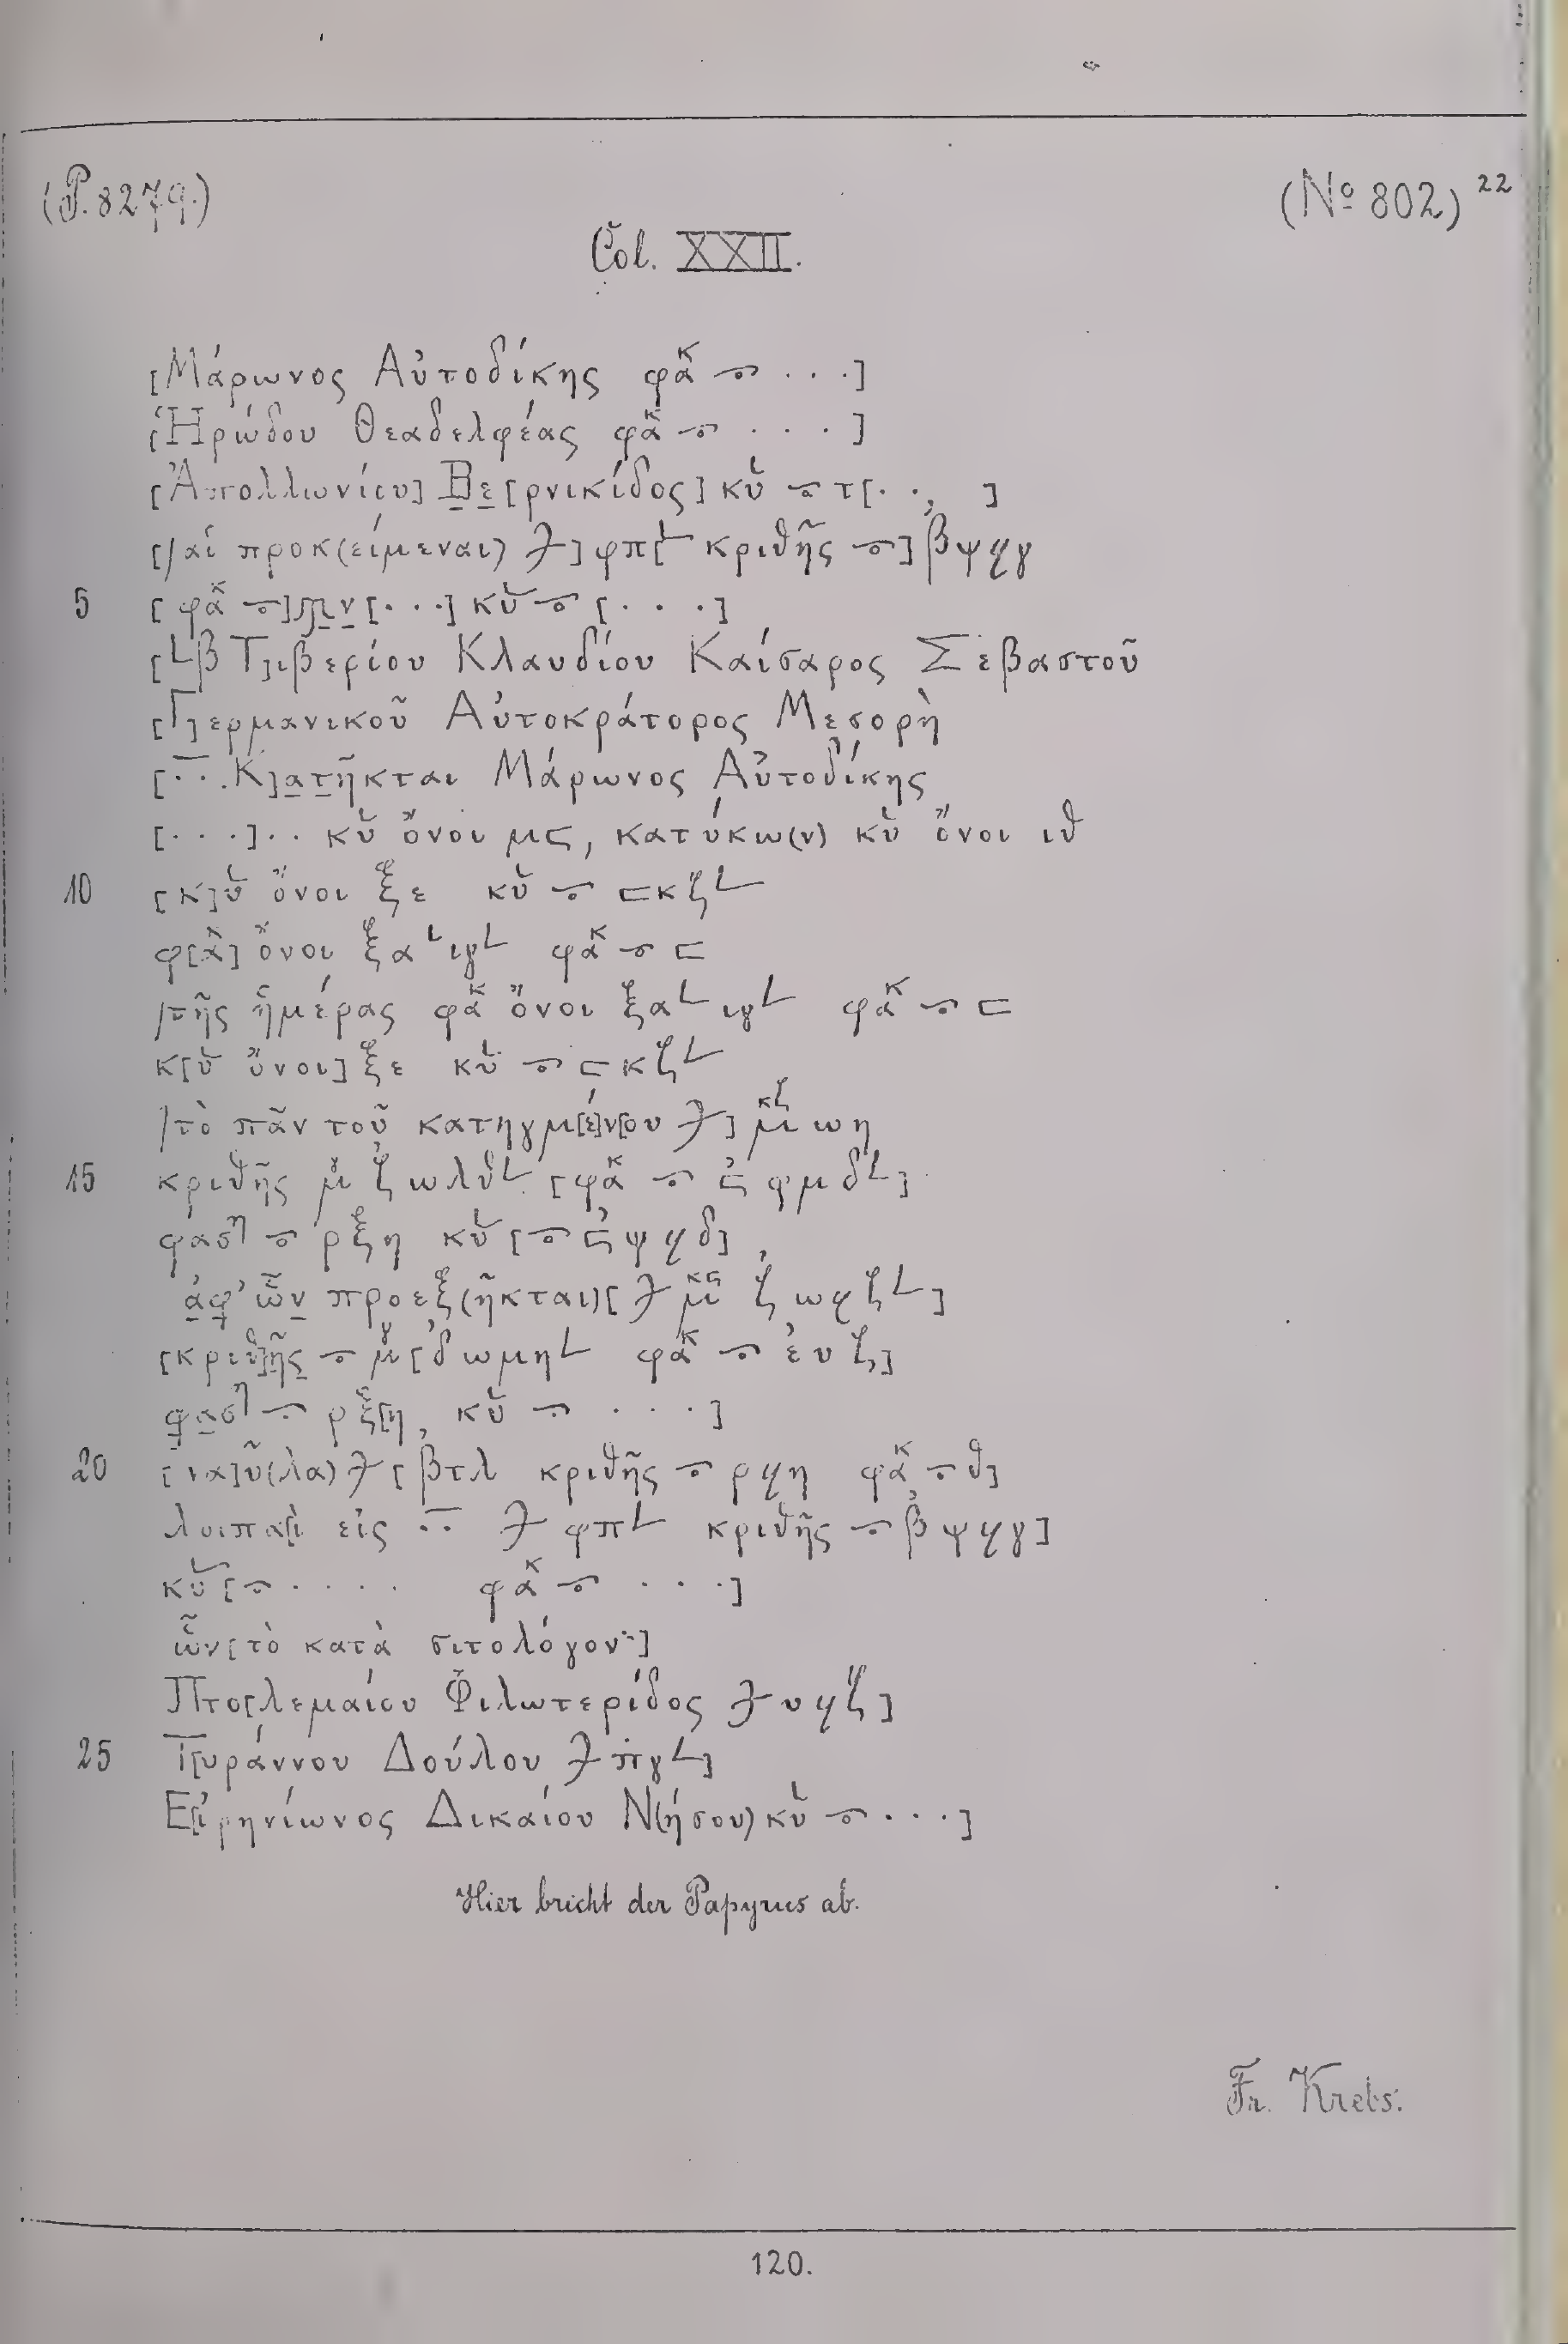 (P. 8279.)
(No 802) 22
Col. XXII.
[Μάρωνος Αὐτοδίκης φακ 𐆊 . . .]
[Ἡρώδου Θεαδελφέας φακ 𐆊 . . .]
[Ἀπολλωνίου] Βε[ρνικίδος] κυ 𐆊 τ[. . , ]
[/αἱ προκ(είμεναι) 𐆎] φπ[𐅵 κριθῆς 𐆊] βψϟγ
5 [φακ 𐆊] μν [. . .] κυ 𐆊 [. . .]
[𐅹β Τ]ιβερίου Κλαυδίου Καίσαρος Σεβαστοῦ
[Γ]ερμανικοῦ Αὐτοκράτορος Μεσορὴ
[. . . Κ]ατῆκται Μάρωνος Αὐτοδίκης
[. . .] . . κυ ὄνοι μϛ, κατύκω(ν) κυ ὄνοι ιθ
10 [κ]υ ὄνοι ξε κυ 𐆊 ϛκζ𐅵
φ[ακ] ὄνοι ξα𐅵ιγ𐅵 φακ 𐆊 ϛ
/τῆς ἡμέρας φακ ὄνοι ξα𐅵 ιγ𐅵 φακ 𐆊 ϛ
κ[υ ὄνοι] ξε κυ 𐆊 ϛκζ𐅵
/τὸ πᾶν τοῦ κατηγμ[έ]ν[ου 𐆎] μκζ ωη
15 κριθῆς μ ζωλθ𐅵 [φακ 𐆊 ϛφμδ𐅵]
φασηλ 𐆊 ρξη κυ [𐆊 ϛψϟδ],
ἀφ’ ὧν προεξ(ῆκται) [𐆎 μκϛ ζωϟζ𐅵]
[κριθ]ῆς 𐆊 μγ [δωμη𐅵 φακ 𐆊 ευζ]
φασηλ 𐆊 ρξ[η, κυ 𐆊 . . .]
20 [να]ῦ(λα) 𐆎 [βτλ κριθῆς 𐆊 ρϟη φακ 𐆊 θ]
λοιπα[ὶ εἰς . . 𐆎 φπ𐅵 κριθῆς 𐆊 βψϟγ]
κυ [𐆊 . . . . φακ 𐆊 . . .]
ὧν [τὸ κατὰ σιτολόγον·]
Πτο[λεμαίου Φιλωτερίδος 𐆎 υϟζ]
25 Τ[υράννου Δούλου 𐆎 πγ𐅵]
Ε[ἰρηνίωνος Δικαίου Ν(ήσου) κυ 𐆊 . . .]
Hier bricht der Papyrus ab.
Fr. Krebs.
120.